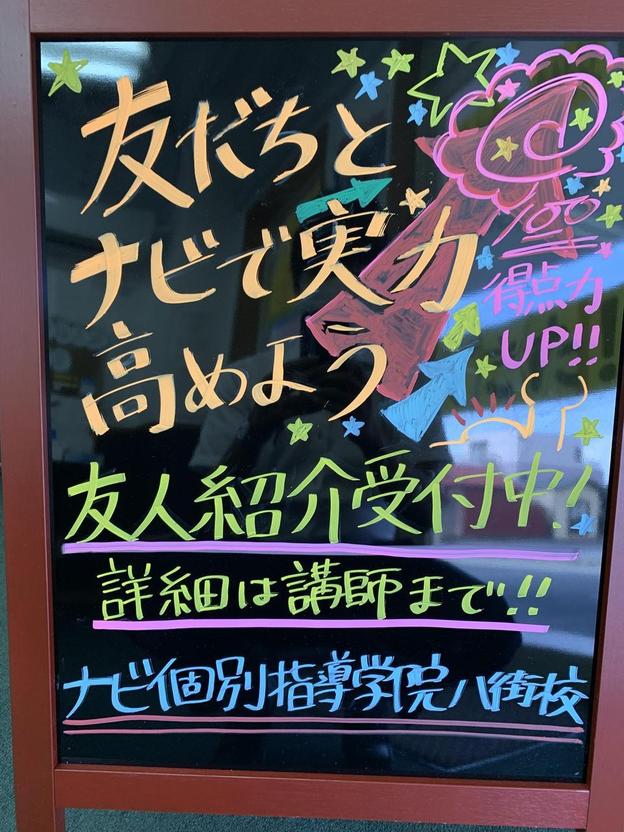 友だちと
ナビで実力
高めよう
100
得点力
UP!!
友人紹介受付中!
詳細は講師まで!!
ナビ個別指導学院八街校